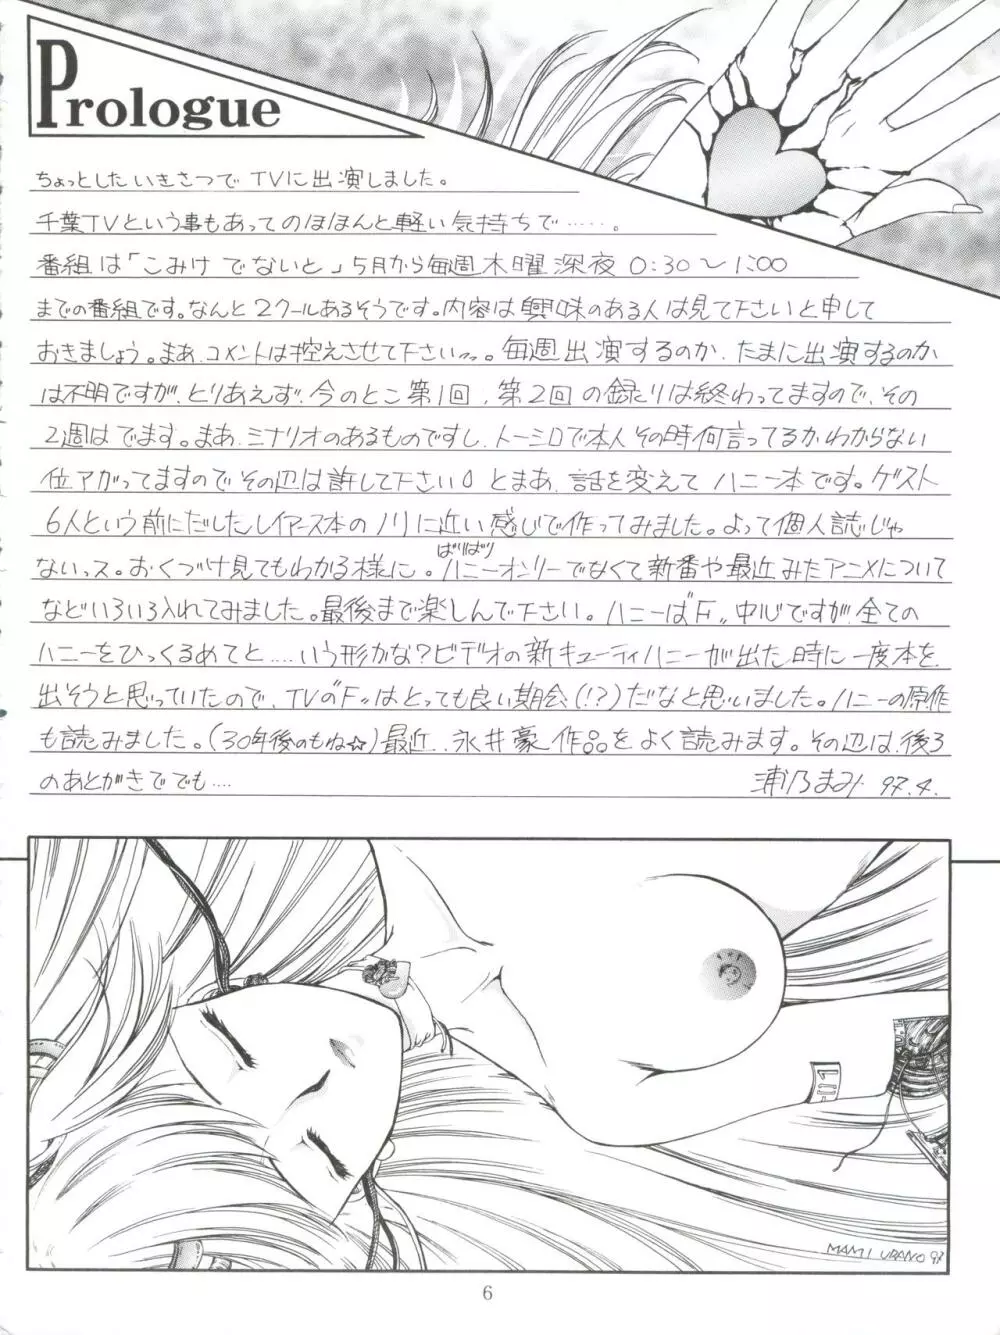 Prologue
ちょっとしたいきさつでTVに出演しました。
千葉TVという事もあってのほほんと軽い気持ちで……。
番組は「こみけでないと」5月から毎週木曜深夜0:30〜1:00
までの番組です。なんと2クールあるそうです。内容は興味のある人は見て下さいと申して
おきましょう。まあ、コメントは控えさせて下さい…。毎週出演するのか、たまに出演するのか
は不明ですが、とりあえず、今のとこ第1回、第2回の録りは終わってますので、その
2週はでます。まあ、シナリオのあるものですし、トーシロで本人その時何言ってるかわからない
位アガってますのでその辺は許して下さい。とまあ、話を変えてハニー本です。ゲスト
6人という前にだしたレイアース本のノリに近い感じで作ってみました。よって個人誌じゃ
ないっス。おくづけ見てもわかる様に。ばりばりハニーオンリーでなくて新番や最近みたアニメについて
などいろいろ入れてみました。最後まで楽しんで下さい。ハニーは"F"中心ですが、全ての
ハニーをひっくるめてと……いう形かな?ビデオの新キューティハニーが出た時に一度本を
出そうと思っていたので、TVの"F"はとっても良い期会(!?)だなと思いました。ハニーの原作
も読みました。(30年後のもね☆)最近、永井豪作品をよく読みます。その辺は、後ろ
のあとがきででも…
浦乃まみ 97.4.
MAMI URANO 97
6